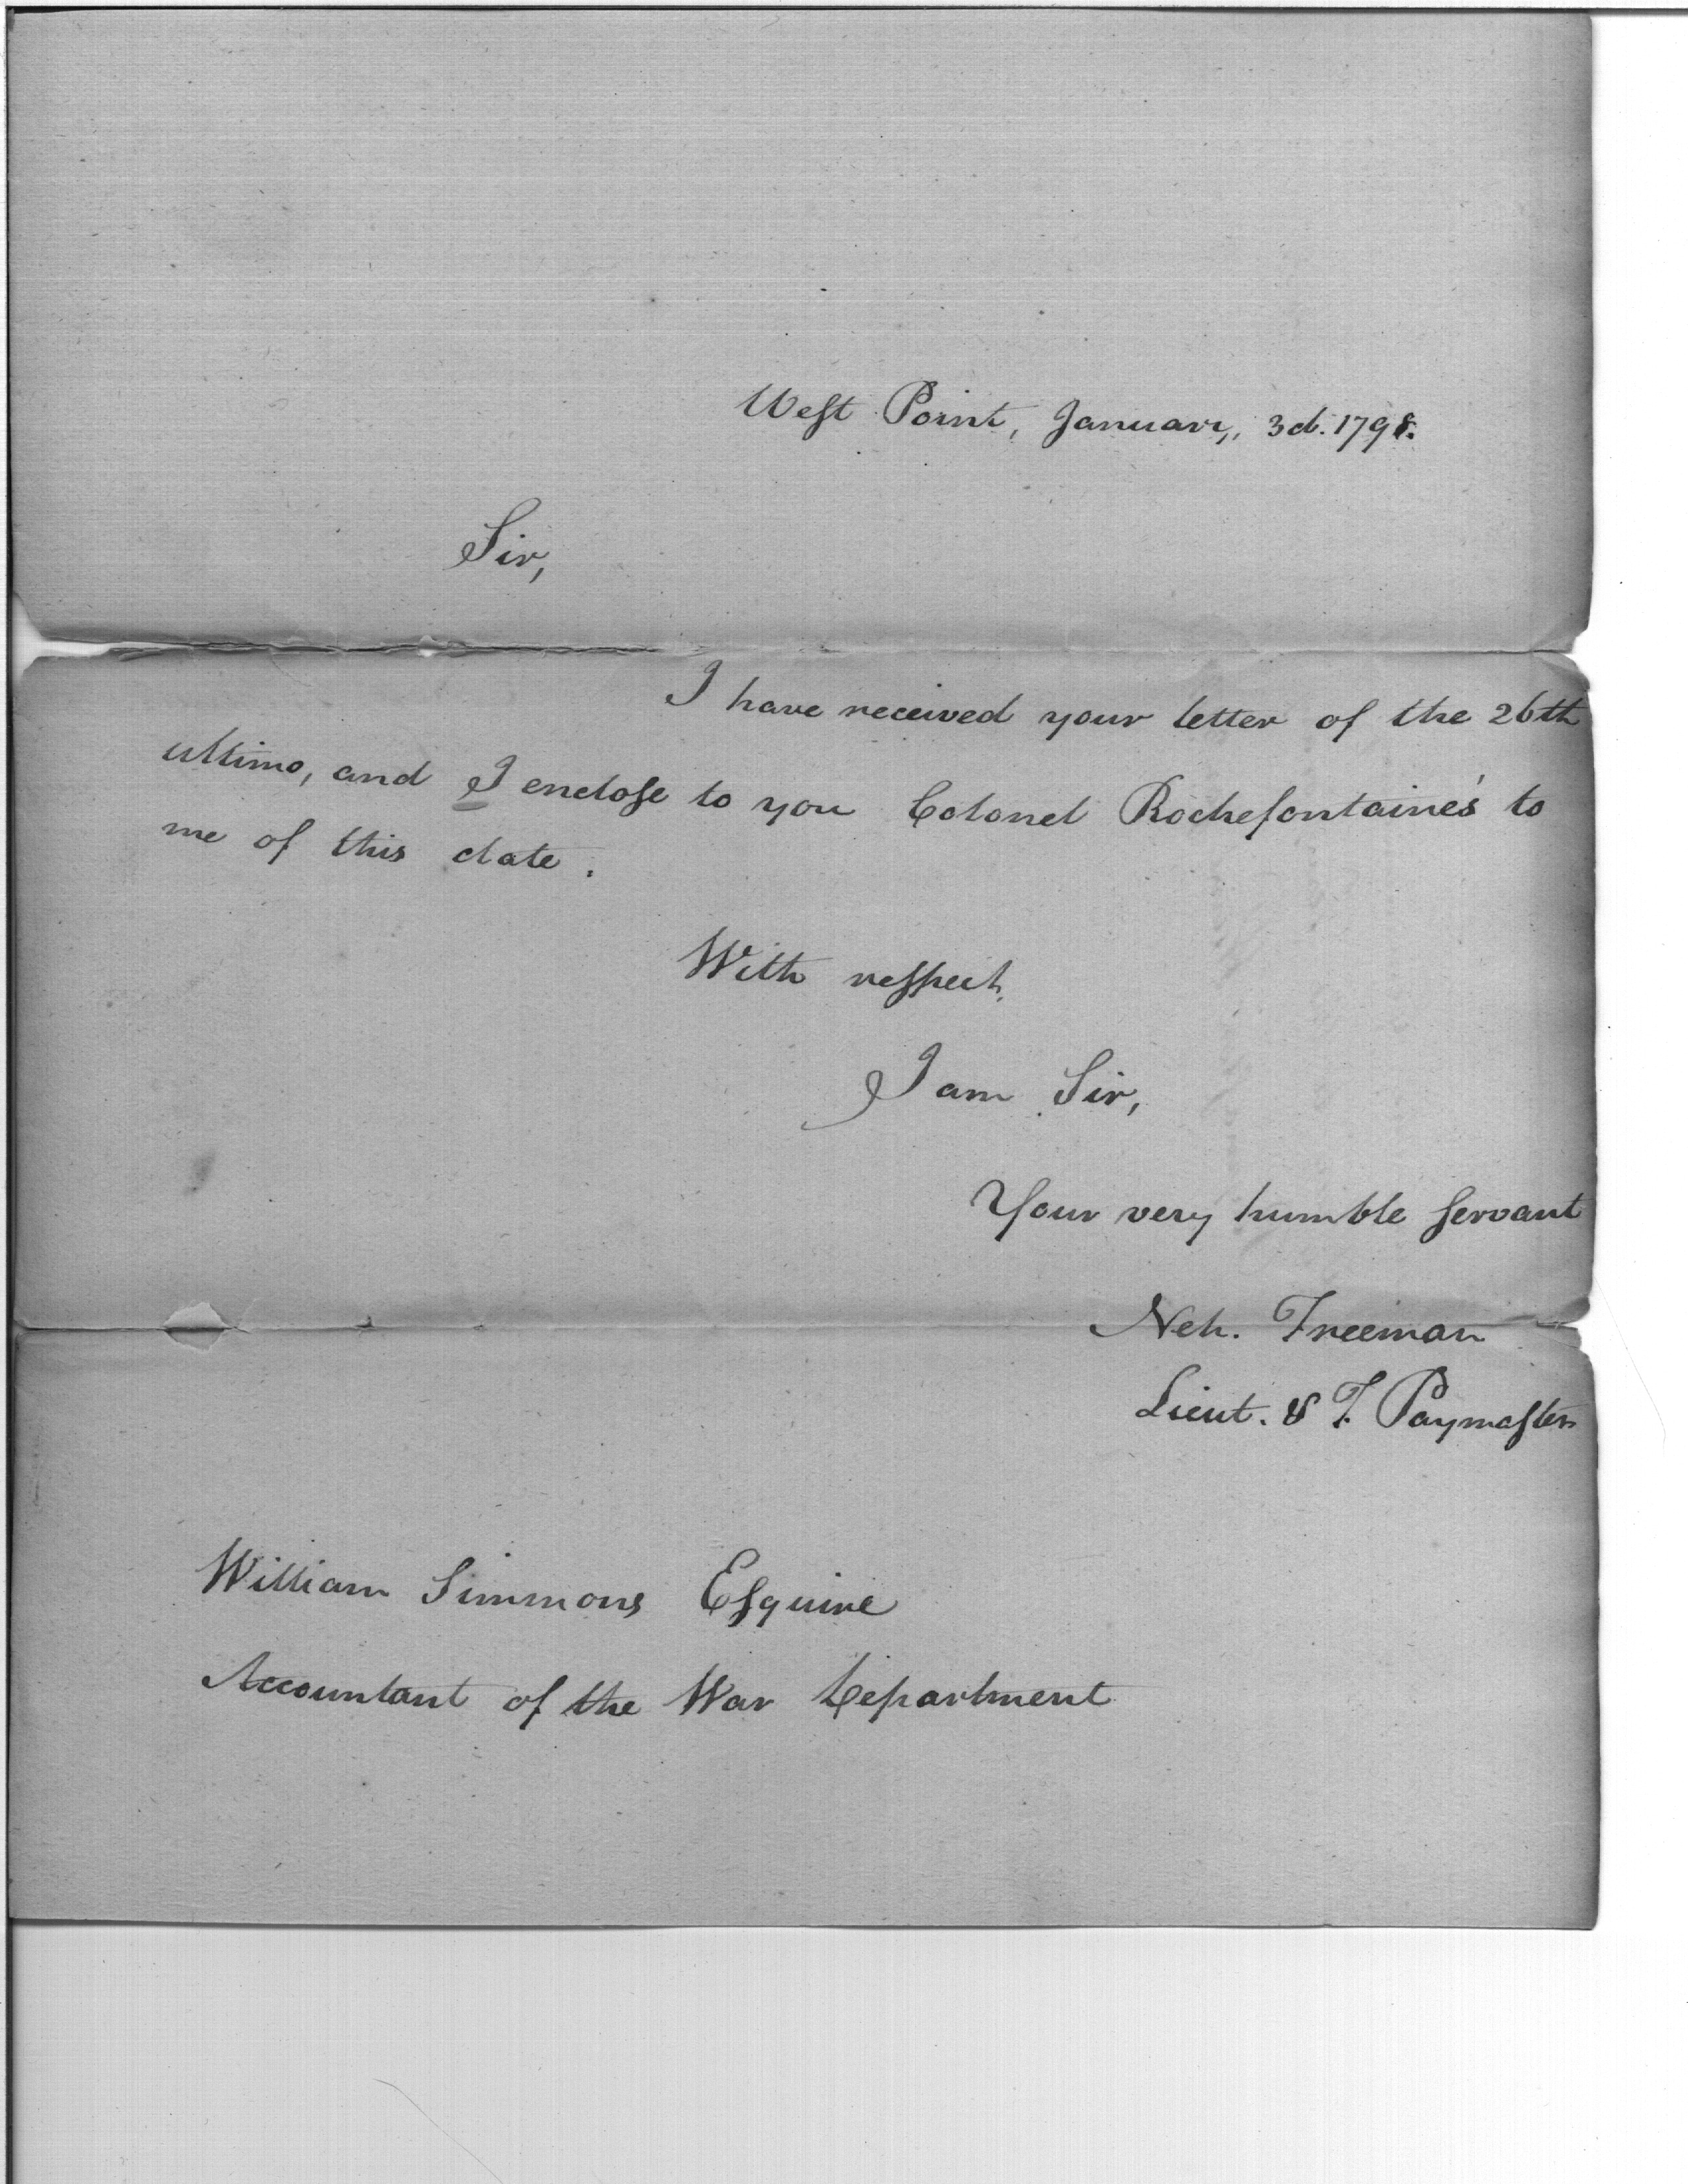 West Point, January, 3d. 1798.
Sir,
I have received your letter of the 26th
ultimo, and I enclose to you Colonel Rochefontaine's to
me of this date.
With respect,
I am Sir,
Your very humble servant
Neh. Freeman
Lieut. & T. Paymaster
William Simmons Esquire
Accountant of the War Department